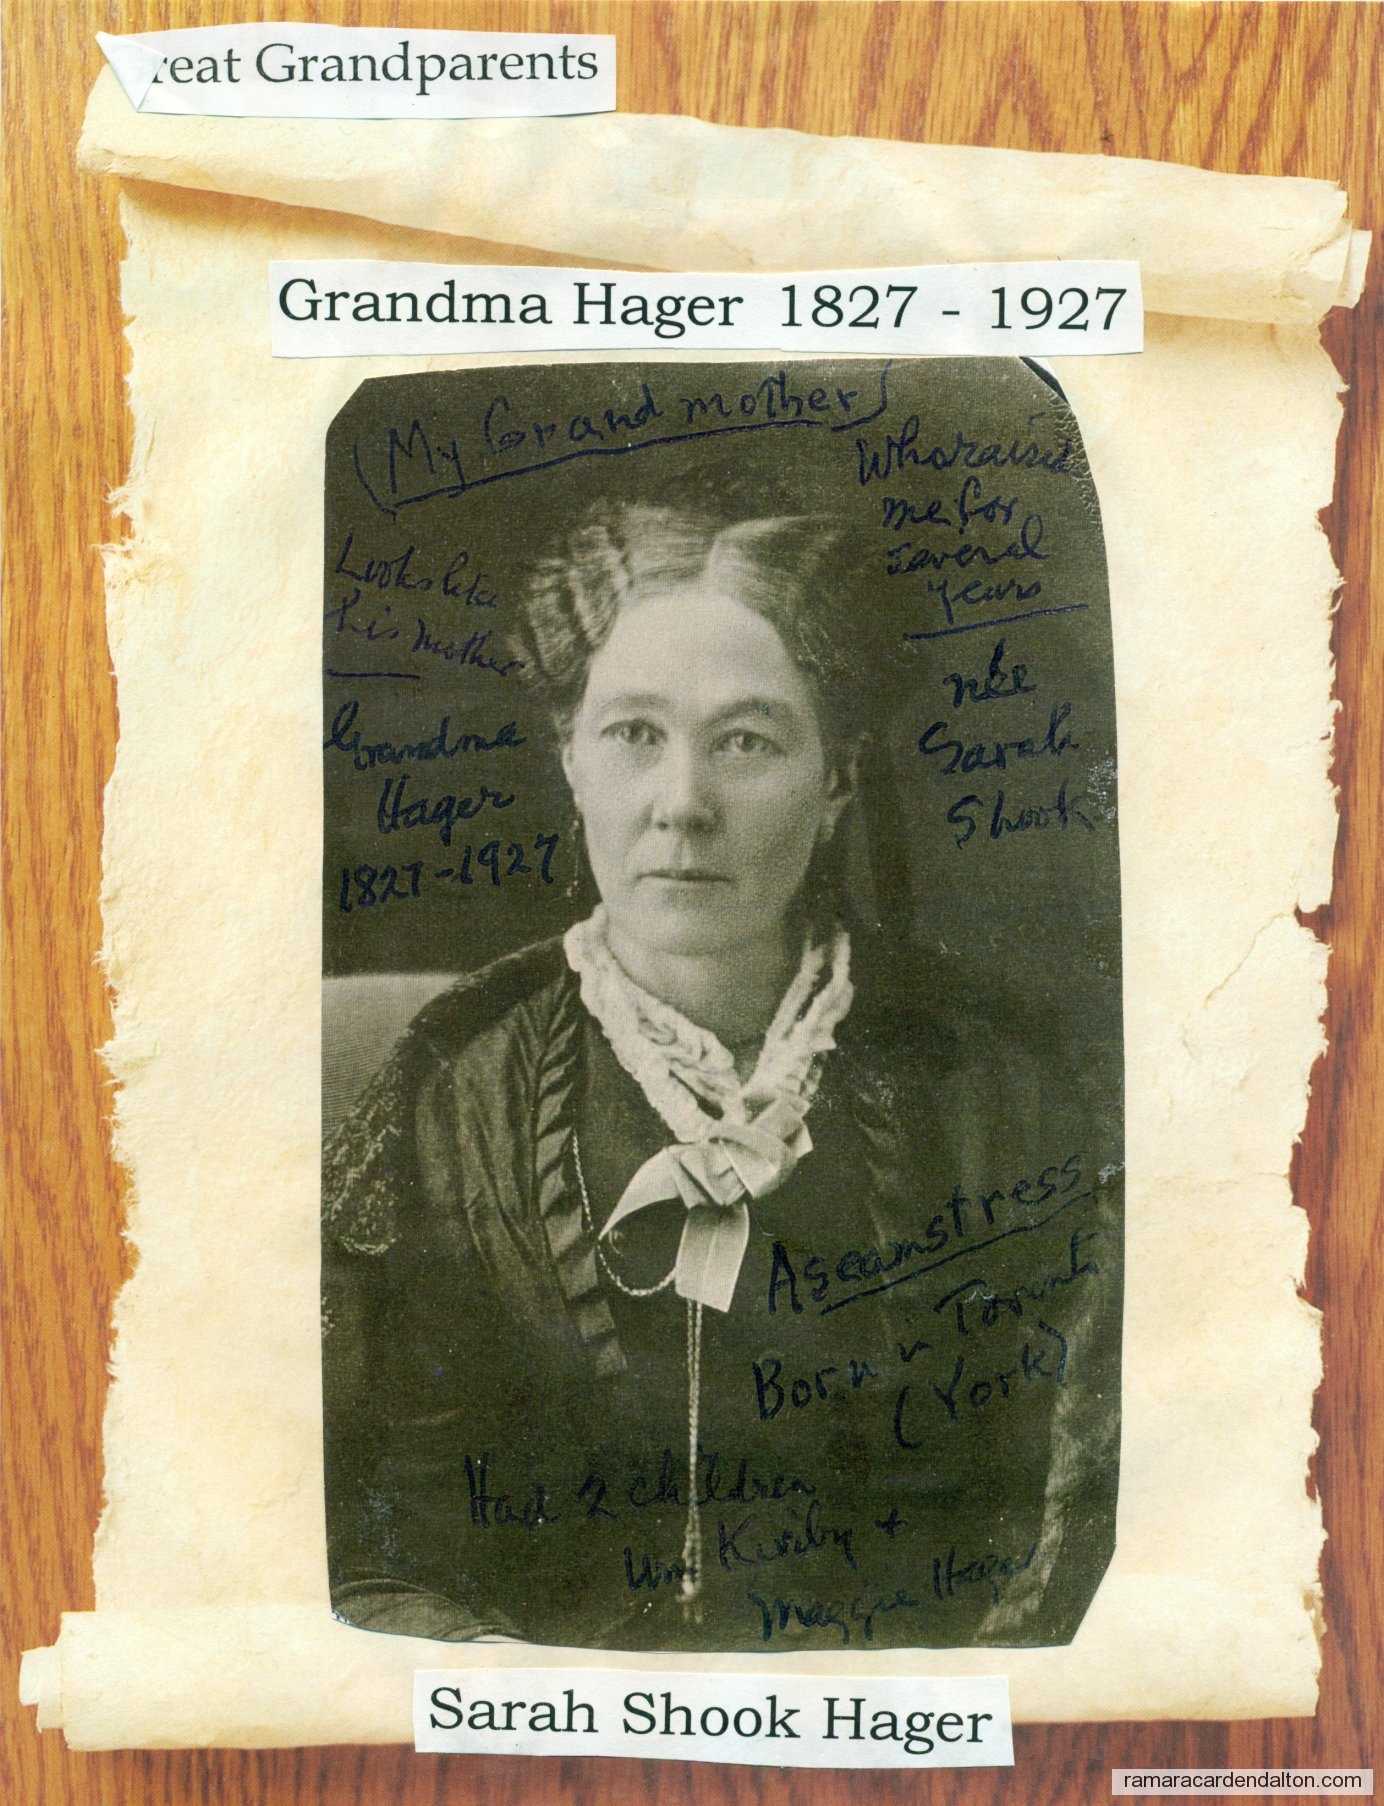 reat Grandparents
Grandma Hager 1827 - 1927
(My Grandmother)
Who raised
me for
several
years
née
Sarah
Shook
Looks like
his mother
Grandma
Hager
1827-1927
A seamstress
Born in Toronto
(York)
Had 2 children
Wm Kirby +
Maggie Hager
Sarah Shook Hager
ramaracardendalton.com